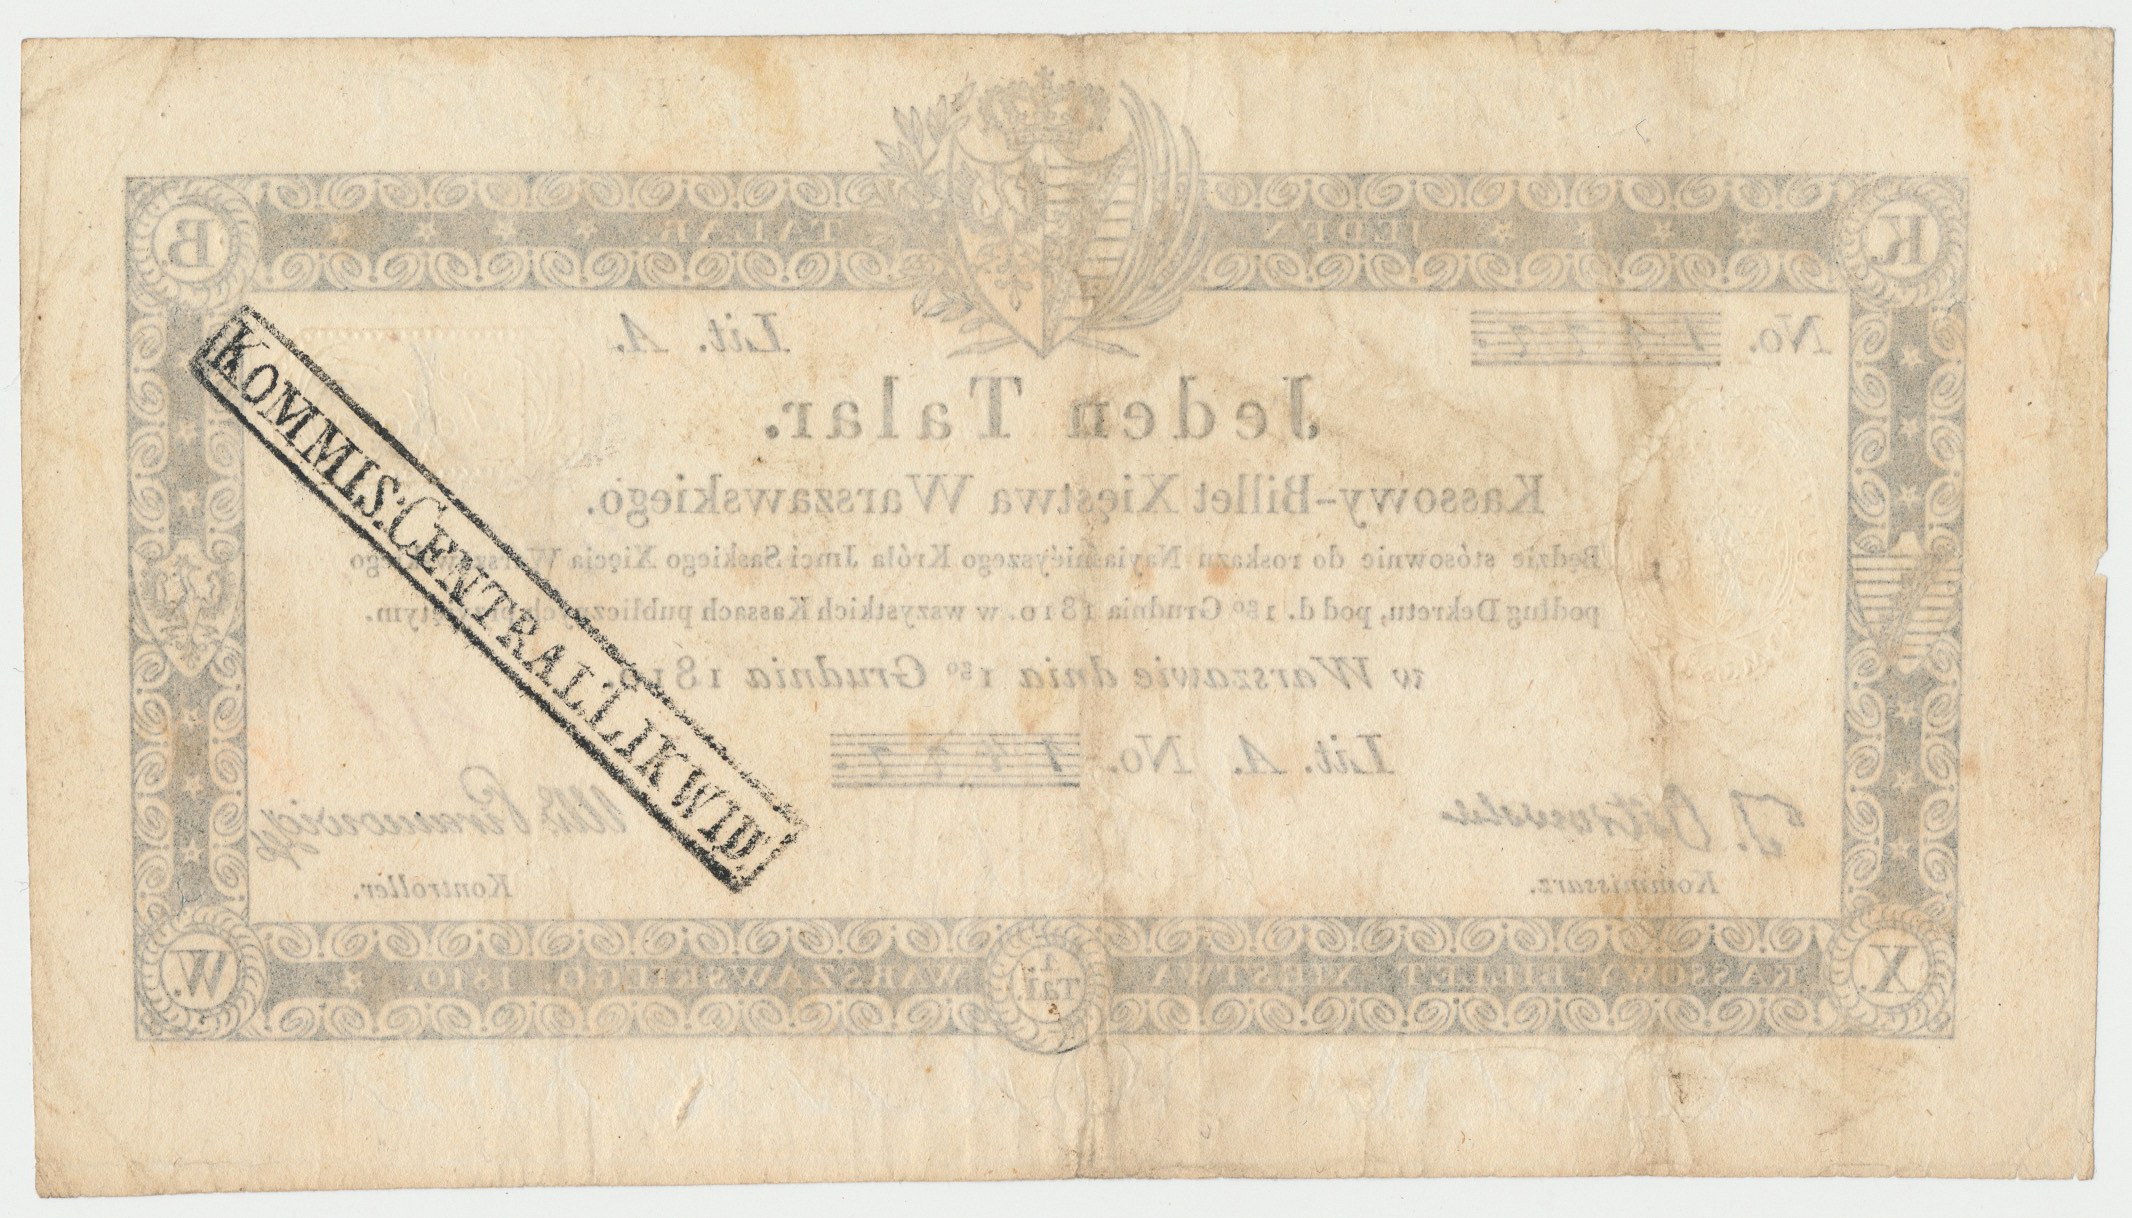 B.
TALAR.
JEDEN
K.
No. 1477.
Lit. A.
Jeden Talar.
Kassowy-Billet Xięstwa Warszawskiego.
Będzie stósownie do roskazu Nayiaśniéyszego Króla Jmci Saskiego Xięcia Warszawskiego
podług Dekretu, pod d. 1go Grudnia 1810. w wszystkich Kassach publicznych przyiętym.
w Warszawie dnia 1go Grudnia 1810.
Lit. A. No. 1477.
Kommissarz.
Kontroller.
KOMMIS: CENTRAL: LIKWID:
X.
KASSOWY BILLET XIĘSTWA
1 Tal.
WARSZAWSKIEGO. 1810.
W.